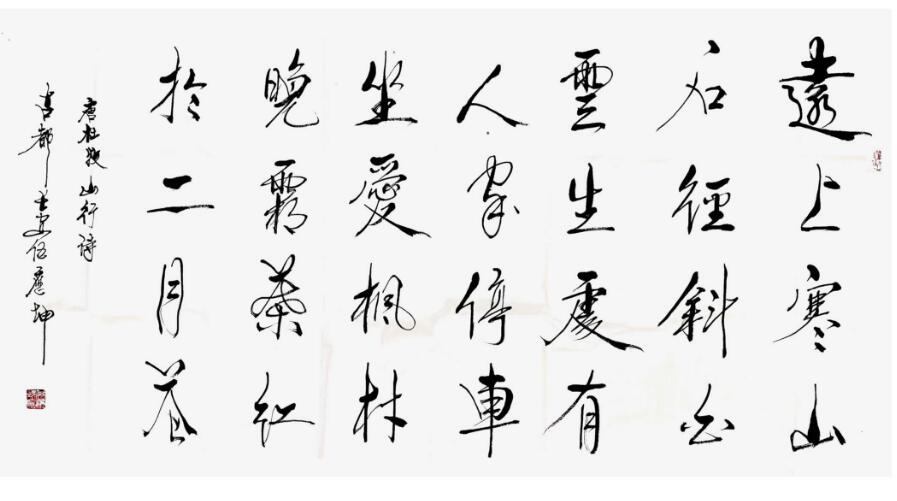 遠上寒山
石徑斜白
雲生處有
人家停車
坐愛楓林
晚霜葉紅
於二月花
唐杜牧山行詩
都 伍應坤